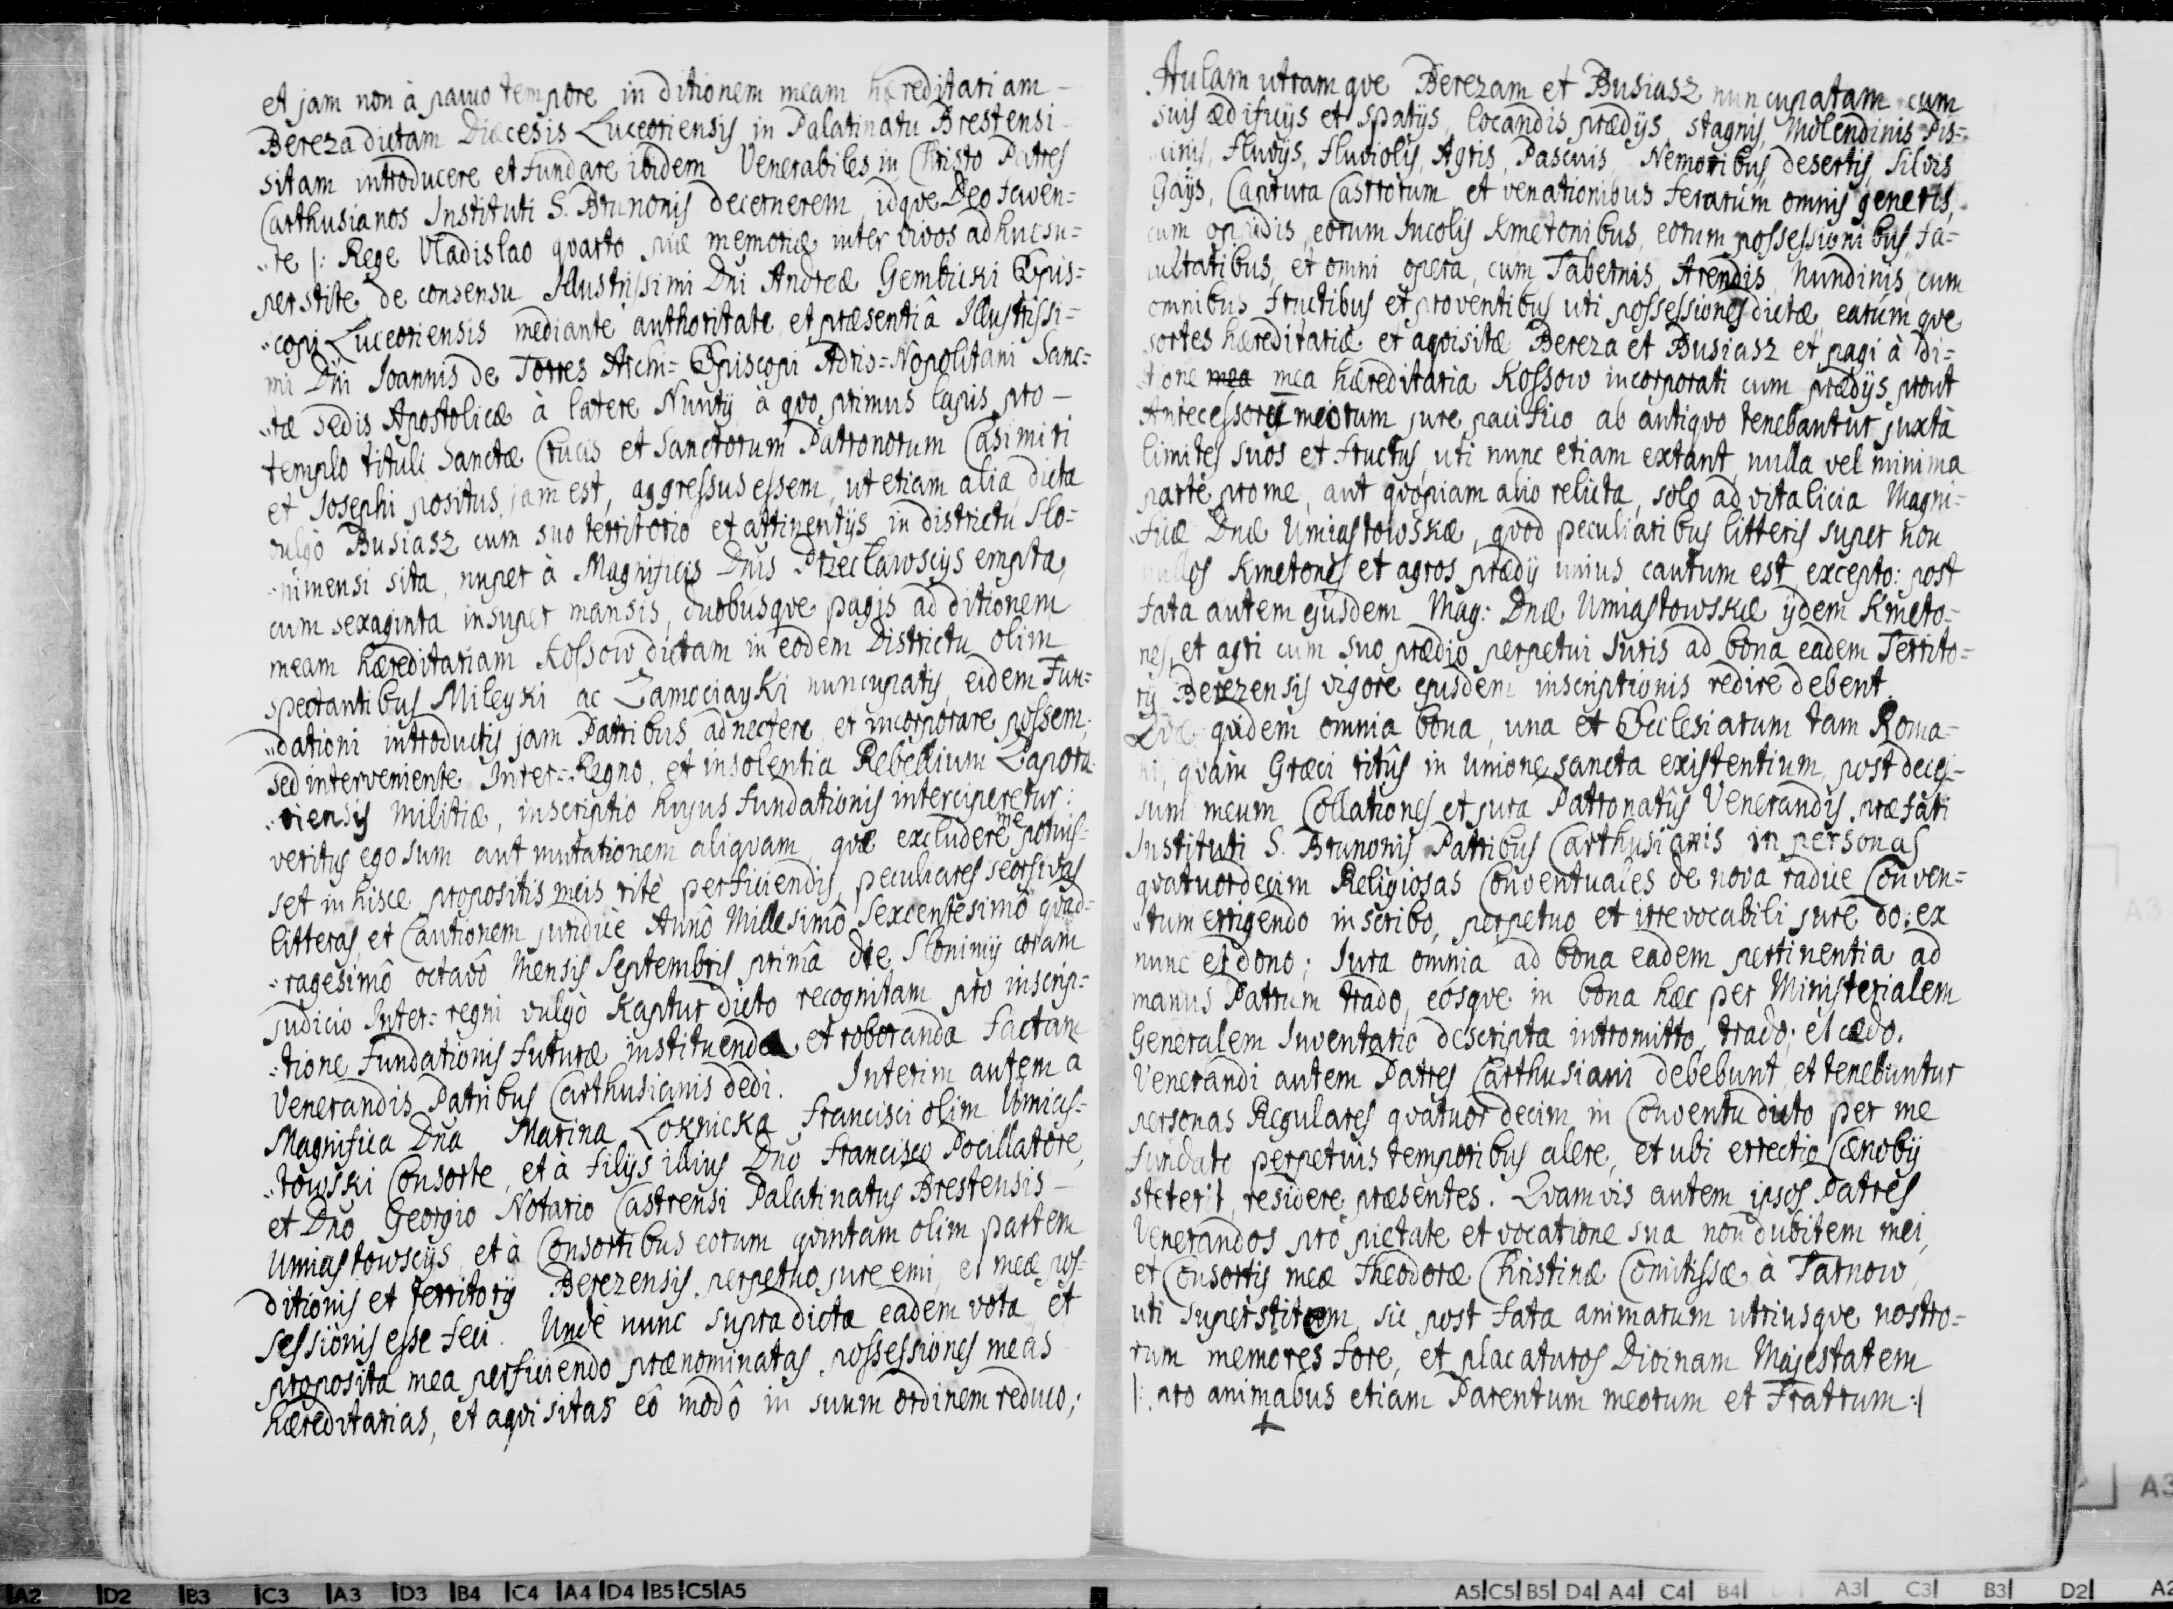 et jam non à paruo tempore in ditionem meam hæreditariam –
Bereza dictam Diæcesis Luceoriensis in Palatinatu Brestensi –
sitam introducere et fundare ibidem Venerabiles in Christo Patres
Carthusianos Instituti S. Brunonis decernerem, idqve Deo faven=
„te |: Rege Vladislao quarto piæ memoriæ inter vivos adhuc su=
perstite de consensu Illustrissimi Dni Andreæ Gembicki Epis=
„copi Luceoriensis mediante authoritate et præsentiâ Illustrissi=
mi Dni Joannis de Torres Archi= Episcopi Adris=Nopolitani Sanc=
„tæ Sedis Apostolicæ à latere Nuntij à qvo primus lapis pro –
templo tituli Sanctæ Crucis et Sanctorum Patronorum Casimiri
et Josephi positus jam est, aggressus essem, ut etiam alia dicta
vulgò Busiasz cum suo territorio et attinentijs in districtu Slo=
„nimensi sita, nuper à Magnificis Dnis Przecławscijs empta,
cum sexaginta insuper mansis, duobusqve pagis ad ditionem
meam hæreditariam Kossow dictam in eodem Districtu olim
spectantibus Mileyki ac Zamociayki nuncupatis, eidem Fun=
„dationi introductis jam Patribus adnectere et incorporare possem.
sed interveniente Inter=Regno, et insolentia Rebellium Zaporo
„viensis Militiæ, inscriptio hujus fundationis interciperetur:
veritus ego sum aut mutationem aliqvam, qvæ excludere me potuis=
set in hisce propositis meis ritè perficiendis, peculiares seorsivas
litteras, et Cautionem juridicè Annô Millesimô Sexcentesimô qvad=
„ragesimô octavô Mensis Septembris primâ die Slonimij coram
judicio Inter=regni vulgò Kaptur dicto recognitam pro inscrip=
„tione Fundationis futuræ instituenda et roboranda factam
Venerandis Patribus Carthusianis dedi. Interim autem a
Magnifica Dna Marina Łoknicka Francisci olim Umias=
„towski Consorte, et à filijs illius Dno Francisco Pocillatore,
et Dno Georgio Notario Castrensi Palatinatus Brestensis –
Umiastowscijs, et à Consortibus eorum qvintam olim partem
ditionis et territorij Berezensis perpetuo jure emi, et meæ pos=
sessionis esse feci. Unde nunc supra dicta eadem vota et
proposita mea perficiendo prænominatas possessiones meas
hæreditarias, et aqvisitas eô modô in suum ordinem reduco;
Aulam utramqve Berezam et Busiasz nuncupatam cum
suis ædificijs et spatijs locandis, prædijs, stagnis, Molendinis Pis=
cinis, Fluvijs, Fluviolis, Agris, Pascuis, Nemoribus, desertis, Silvis
Gays, Captura Castrorum et venationibus ferarum omnis generis,
cum oppidis, eorum Incolis Kmetonibus, eorum possessionibus, fa=
cultatibus, et omni opera, cum Tabernis, Arendis, Nundinis, cum
omnibus fructibus et proventibus uti possessiones dictæ, earumqve
sortes hæreditariæ et aqvisitæ Bereza et Busiasz et pagi à Di=
tione mea mea hæreditaria Kossow incorporati cum prædijs prout
Antecessorum meorum jure pacifico ab antiqvo tenebantur juxtà
limites suos et fructus uti nunc etiam extant nulla vel minima
parte pro me, aut qvopiam alio relicta, solo advitalicia Magni=
„ficæ Dnæ Umiastowskæ, qvod peculiaribus litteris super non
nullos Kmetones et agros prædij unius cautum est excepto: post
fata autem ejusdem Mag: Dnæ Umiastowskæ ijdem Kmeto=
nes, et agri cum suo prædio perpetui Juris ad bona eadem Territo=
rij Berezensis vigore ejusdem inscriptionis redire debent.
Qvæ qvidem omnia bona, una et Ecclesiarum tam Roma=
ni, qvàm Græci ritûs in Unione sancta existentium, post deces=
sum meum Collationes et jura Patronatûs Venerandis præfati
Instituti S. Brunonis Patribus Carthusianis in personas
qvatuordecim Religiosas Conventuales de nova radice Conven=
„tum errigendo inscribo, perpetuo et irrevocabili jure do: ex
nunc et dono; Jura omnia ad bona eadem pertinentia ad
manus Patrum trado, eosqve in bona hæc per Ministerialem
Generalem Inventario descripta intromitto, trado; et cædo.
Venerandi autem Patres Carthusiani debebunt et tenebuntur
personas Regulares qvatuordecim in Conventu dicto per me
fundato perpetuis temporibus alere, et ubi errectio Cænobij
steterit, residere præsentes. Qvamvis autem ipsos Patres
Venerandos pro pietate et vocatione sua non dubitem mei,
et Consortis meæ Theodoræ Christinæ Comitissæ à Tarnow,
uti superstitum, sic post fata animarum utriusqve nostro=
rum memores fore, et placaturos Divinam Majestatem
|: pro animabus etiam Parentum meorum et Fratrum :|
A2 D2 B3 C3 A3 D3 B4 C4 A4 D4 B5 C5 A5
A5 C5 B5 D4 A4 C4 B4 A3 C3 B3 D2 A2
A3